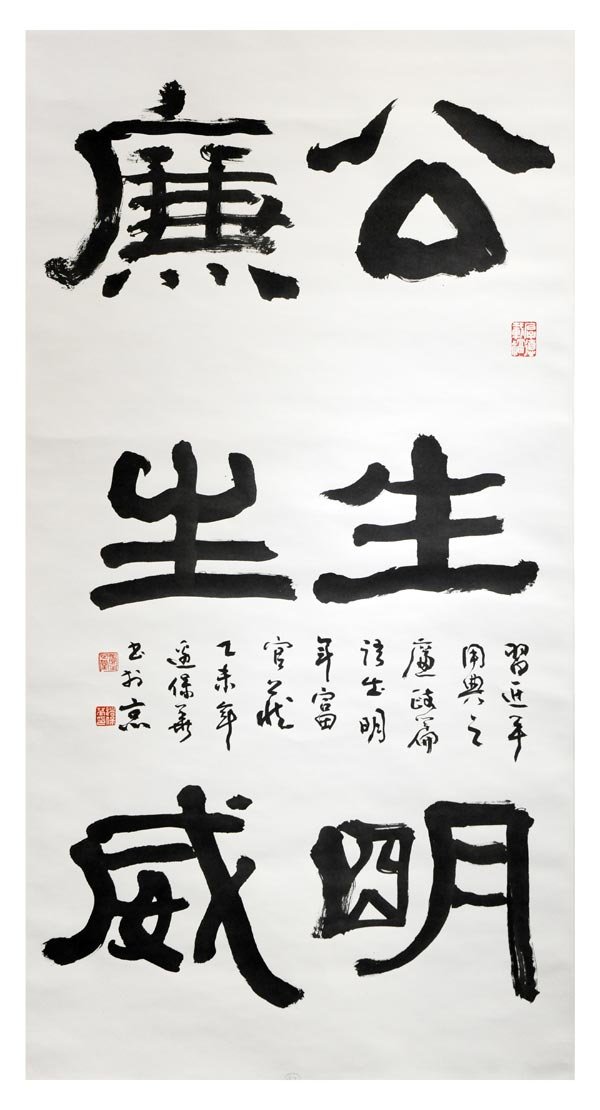 公生明
廉生威
習近平
用典之
廉政篇
語出明
年富
官箴
乙未年
保華
書於京